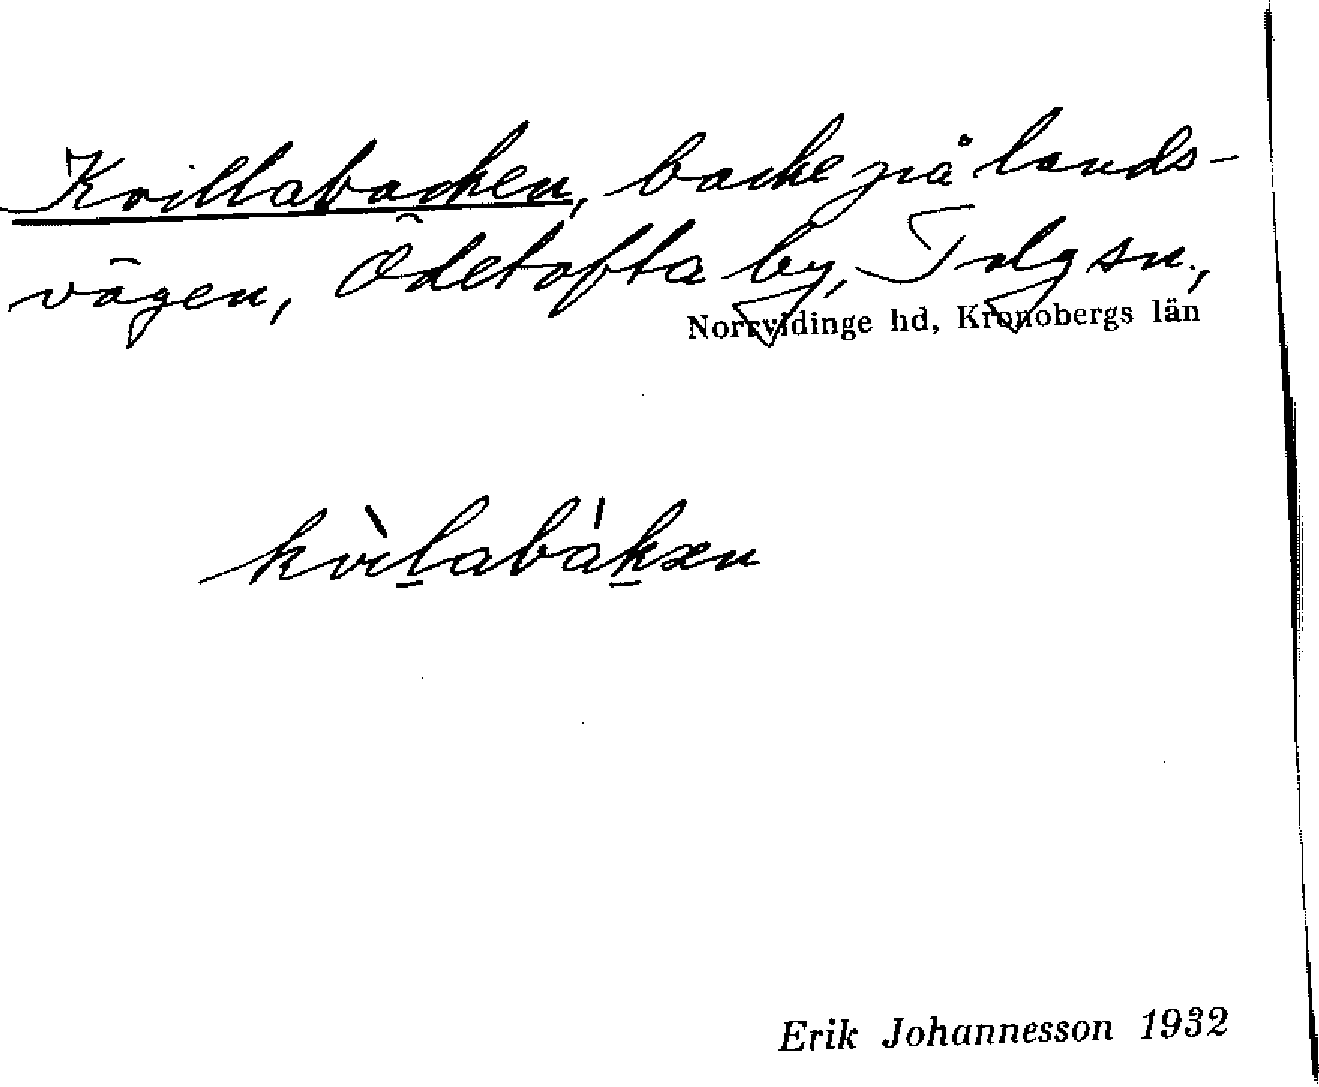 Kvillabacken, backe på lands-
vägen, Ödetofta by, Tolg sn.,
Norrvidinge hd, Kronobergs län
kvìl̲abák̲æn
Erik Johannesson 1932